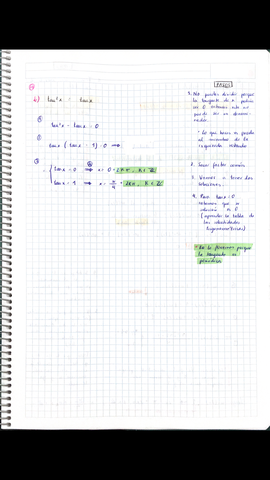 b) tan²x = tanx
① tan²x - tanx = 0
② tanx (tanx - 1) = 0 ⟹
③ tanx = 0 ⟹ x = 0 + 2kπ, k ∈ ℤ
tanx = 1 ⟹ x = π/4 + 2kπ, k ∈ ℤ
PASOS
1. No puedes dividir porque
la tangente de x podría
ser 0 entonces esto no
puede ser un denomi-
nador.
* Lo que hacemos es pasarlo
al miembro de la
izquierda restando
2. Sacar factor común
3. Vamos a tener dos
soluciones.
4. Para tanx = 0
sabemos que la
es 0
(aprender la tabla de
las identidades
trigonométricas)
* Es lo porque
la tangente es
periódica